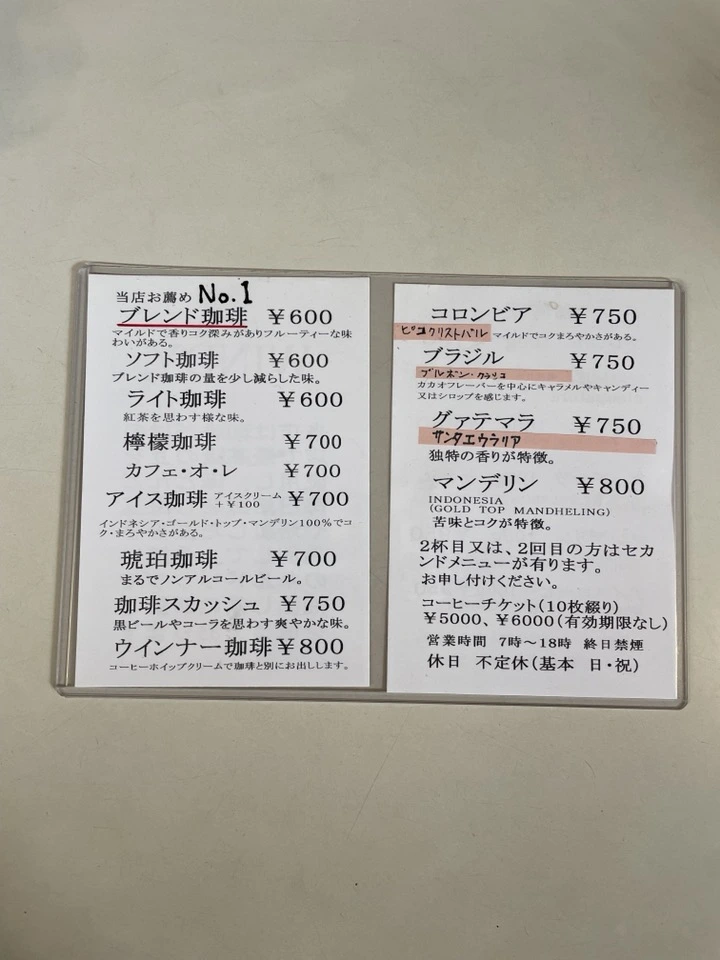 当店お薦め No.1
ブレンド珈琲 ¥600
マイルドで香りコク深みがありフルーティーな味
わいがある。
ソフト珈琲 ¥600
ブレンド珈琲の量を少し減らした味。
ライト珈琲 ¥600
紅茶を思わす様な味。
檸檬珈琲 ¥700
カフェ・オ・レ ¥700
アイス珈琲 アイスクリーム ¥700
+¥100
インドネシア・ゴールド・トップ・マンデリン100%でコ
ク・まろやかさがある。
琥珀珈琲 ¥700
まるでノンアルコールビール。
珈琲スカッシュ ¥750
黒ビールやコーラを思わす爽やかな味。
ウインナー珈琲 ¥800
コーヒーホイップクリームで珈琲と別にお出しします。
コロンビア ¥750
ピコクリストバル マイルドでコクまろやかさがある。
ブラジル ¥750
ブルボン・クラシコ
カカオフレーバーを中心にキャラメルやキャンディー
又はシロップを感じます。
グァテマラ ¥750
サンタエウラリア
独特の香りが特徴。
マンデリン ¥800
INDONESIA
(GOLD TOP MANDHELING)
苦味とコクが特徴。
2杯目又は、2回目の方はセカ
ンドメニューが有ります。
お申し付けください。
コーヒーチケット(10枚綴り)
¥5000、¥6000(有効期限なし)
営業時間 7時〜18時 終日禁煙
休日 不定休(基本 日・祝)